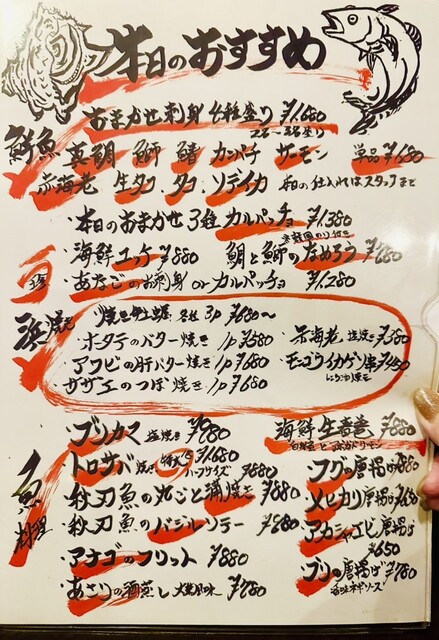 本日のおすすめ
おまかせ刺身 6種盛り ¥1,680
2名〜3名盛り
鮮魚 真鯛 鰤 鰆 カンパチ サーモン 単品¥680
赤海老 生タコ タコ ソデイカ 本日の仕入れはスタッフまで
・本日のおまかせ3種カルパッチョ ¥1,380
・海鮮ユッケ ¥880 鯛と鰤のなめろう ¥680
・あなごのお刺身 or カルパッチョ ¥1,280
浜焼 焼き牡蠣 3P ¥680〜
・ホタテのバター焼き 1P ¥580 ・赤海老 塩焼き ¥380
・アワビの肝バター焼き 1P ¥680 ・モンゴウイカゲソ串 ¥450
・サザエのつぼ焼き 1P ¥680 にんにく焼き
・ブリカマ 塩焼き ¥980 海鮮生春巻 ¥880
・トロサバ 焼き 特大 ¥1,680 ハーフサイズ ¥880 ・フグの唐揚げ ¥880
秋刀魚の丸ごと蒲焼き ¥880 ・メヒカリ唐揚げ
・秋刀魚のバジルソテー ¥880 ・アカシャエビ唐揚げ ¥650
・アナゴのフリット ¥880 ・ブリの唐揚げ ¥780
・あさりの酒蒸し 大葉風味 ¥780 香味ネギソース
魚料理